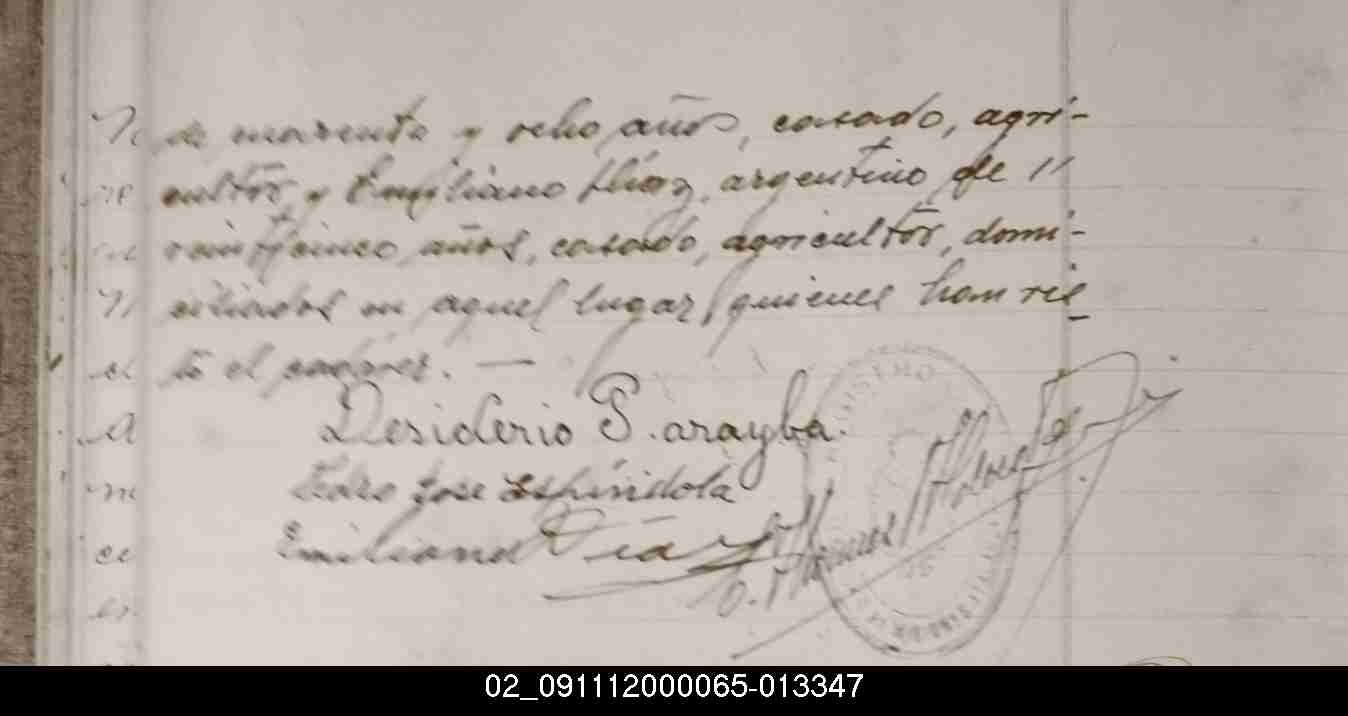 de cuarenta y ocho años, casado, agri-
cultor, y Emiliano Díaz, argentino de "
veinticinco años, casado, agricultor, domi-
ciliados en aquel lugar, quienes han vis
to el cadáver. —
Desiderio P. arayba.
Pedro Jose Espíndola
Emiliano Díaz
REGISTRO
02_091112000065-013347